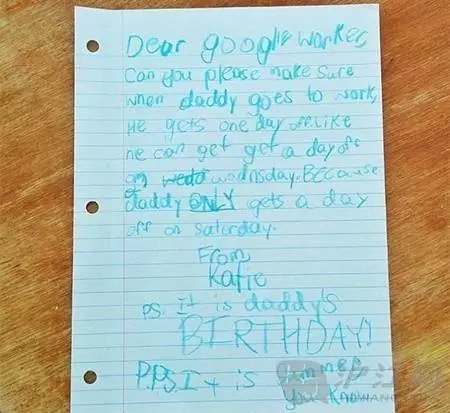 Dear google worker,
Can you please make sure
when daddy goes to work,
He gets one day off. Like
he can get get a day off
on wedd wednsday. Because
daddy ONLY gets a day
off on saturday.
From,
Katie
P.S. It is daddy's
BIRTHDAY!
P.P.S. It is summer
you know
沪江网